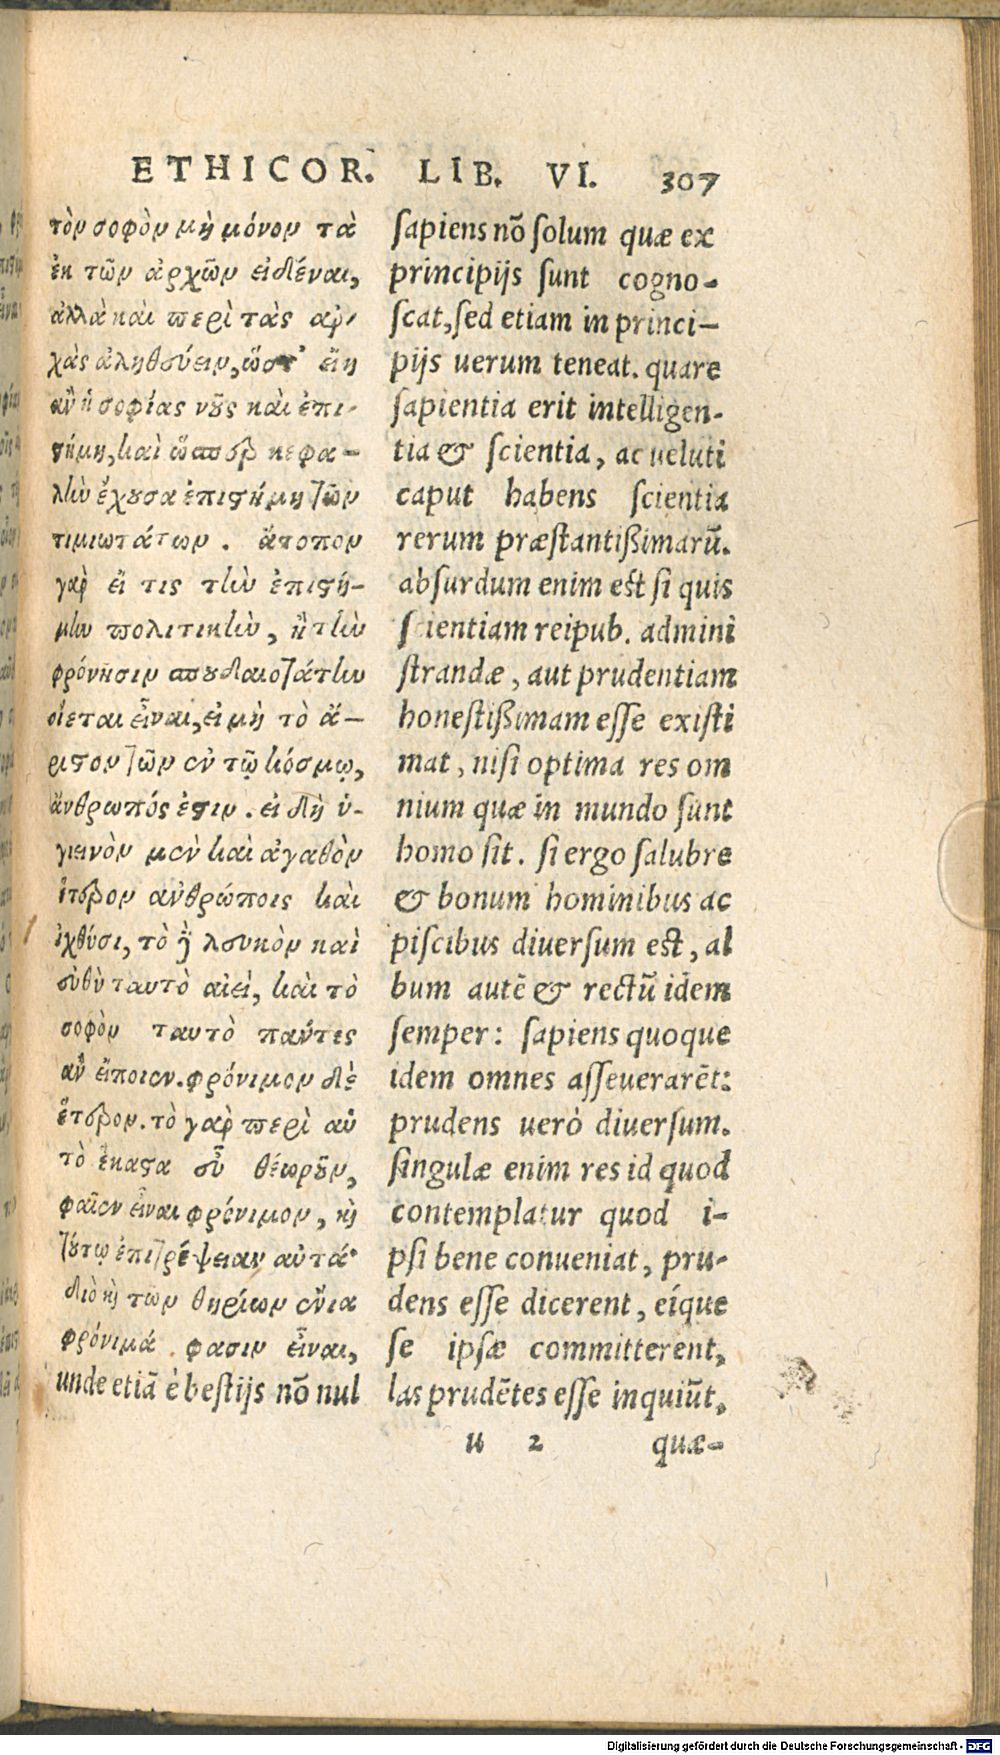 ETHICOR. LIB. VI. 307
τὸν σοφὸν μὴ μόνον τὰ
ἐκ τῶν ἀρχῶν εἰδέναι,
ἀλλὰ καὶ περὶ τὰς ἀρ-
χὰς ἀληθεύειν, ὥστ' εἴη
ἂν ἡ σοφίας νοῦς καὶ ἐπι-
στήμη, καὶ ὥσπερ κεφα-
λὴν ἔχουσα ἐπιστήμη τῶν
τιμιωτάτων. ἄτοπον
γὰρ εἴ τις τὴν ἐπιστή-
μην πολιτικὴν, ἢ τὴν
φρόνησιν σπουδαιοτάτην
οἴεται εἶναι, εἰ μὴ τὸ ἄ-
ριστον τῶν ἐν τῷ κόσμῳ,
ἄνθρωπός ἐστιν. εἰ δὴ ὑ-
γιεινὸν μὲν καὶ ἀγαθὸν
ἕτερον ἀνθρώποις καὶ
ἰχθύσι, τὸ δὲ λευκὸν καὶ
εὐθὺ ταυτὸ αἰεὶ, καὶ τὸ
σοφὸν ταυτὸ πάντες
ἂν εἴποιεν. φρόνιμον δὲ
ἕτερον. τὸ γὰρ περὶ αὑ
τὸ ἕκαστα εὖ θεωροῦν,
φαῖεν εἶναι φρόνιμον, καὶ
τούτῳ ἐπιτρέψειαν αὐτά·
διὸ καὶ τῶν θηρίων ἔνια
φρόνιμά φασιν εἶναι,
sapiens nõ solum quæ ex
principijs sunt cogno-
scat, sed etiam in princi-
pijs uerum teneat. quare
sapientia erit intelligen-
tia & scientia, ac ueluti
caput habens scientia
rerum præstantißimarũ.
absurdum enim est si quis
scientiam reipub. admini
strandæ, aut prudentiam
honestißimam esse existi
mat, nisi optima res om
nium quæ in mundo sunt
homo sit. si ergo salubre
& bonum hominibus ac
piscibus diuersum est, al
bum autẽ & rectũ idem
semper: sapiens quoque
idem omnes asseuerarẽt:
prudens uerò diuersum.
singulæ enim res id quod
contemplatur quod i-
psi bene conueniat, pru-
dens esse dicerent, eíque
se ipsæ committerent,
unde etiã è bestijs nõ nul las prudẽtes esse inquiũt,
u 2 quæ-
Digitalisierung gefördert durch die Deutsche Forschungsgemeinschaft - DFG